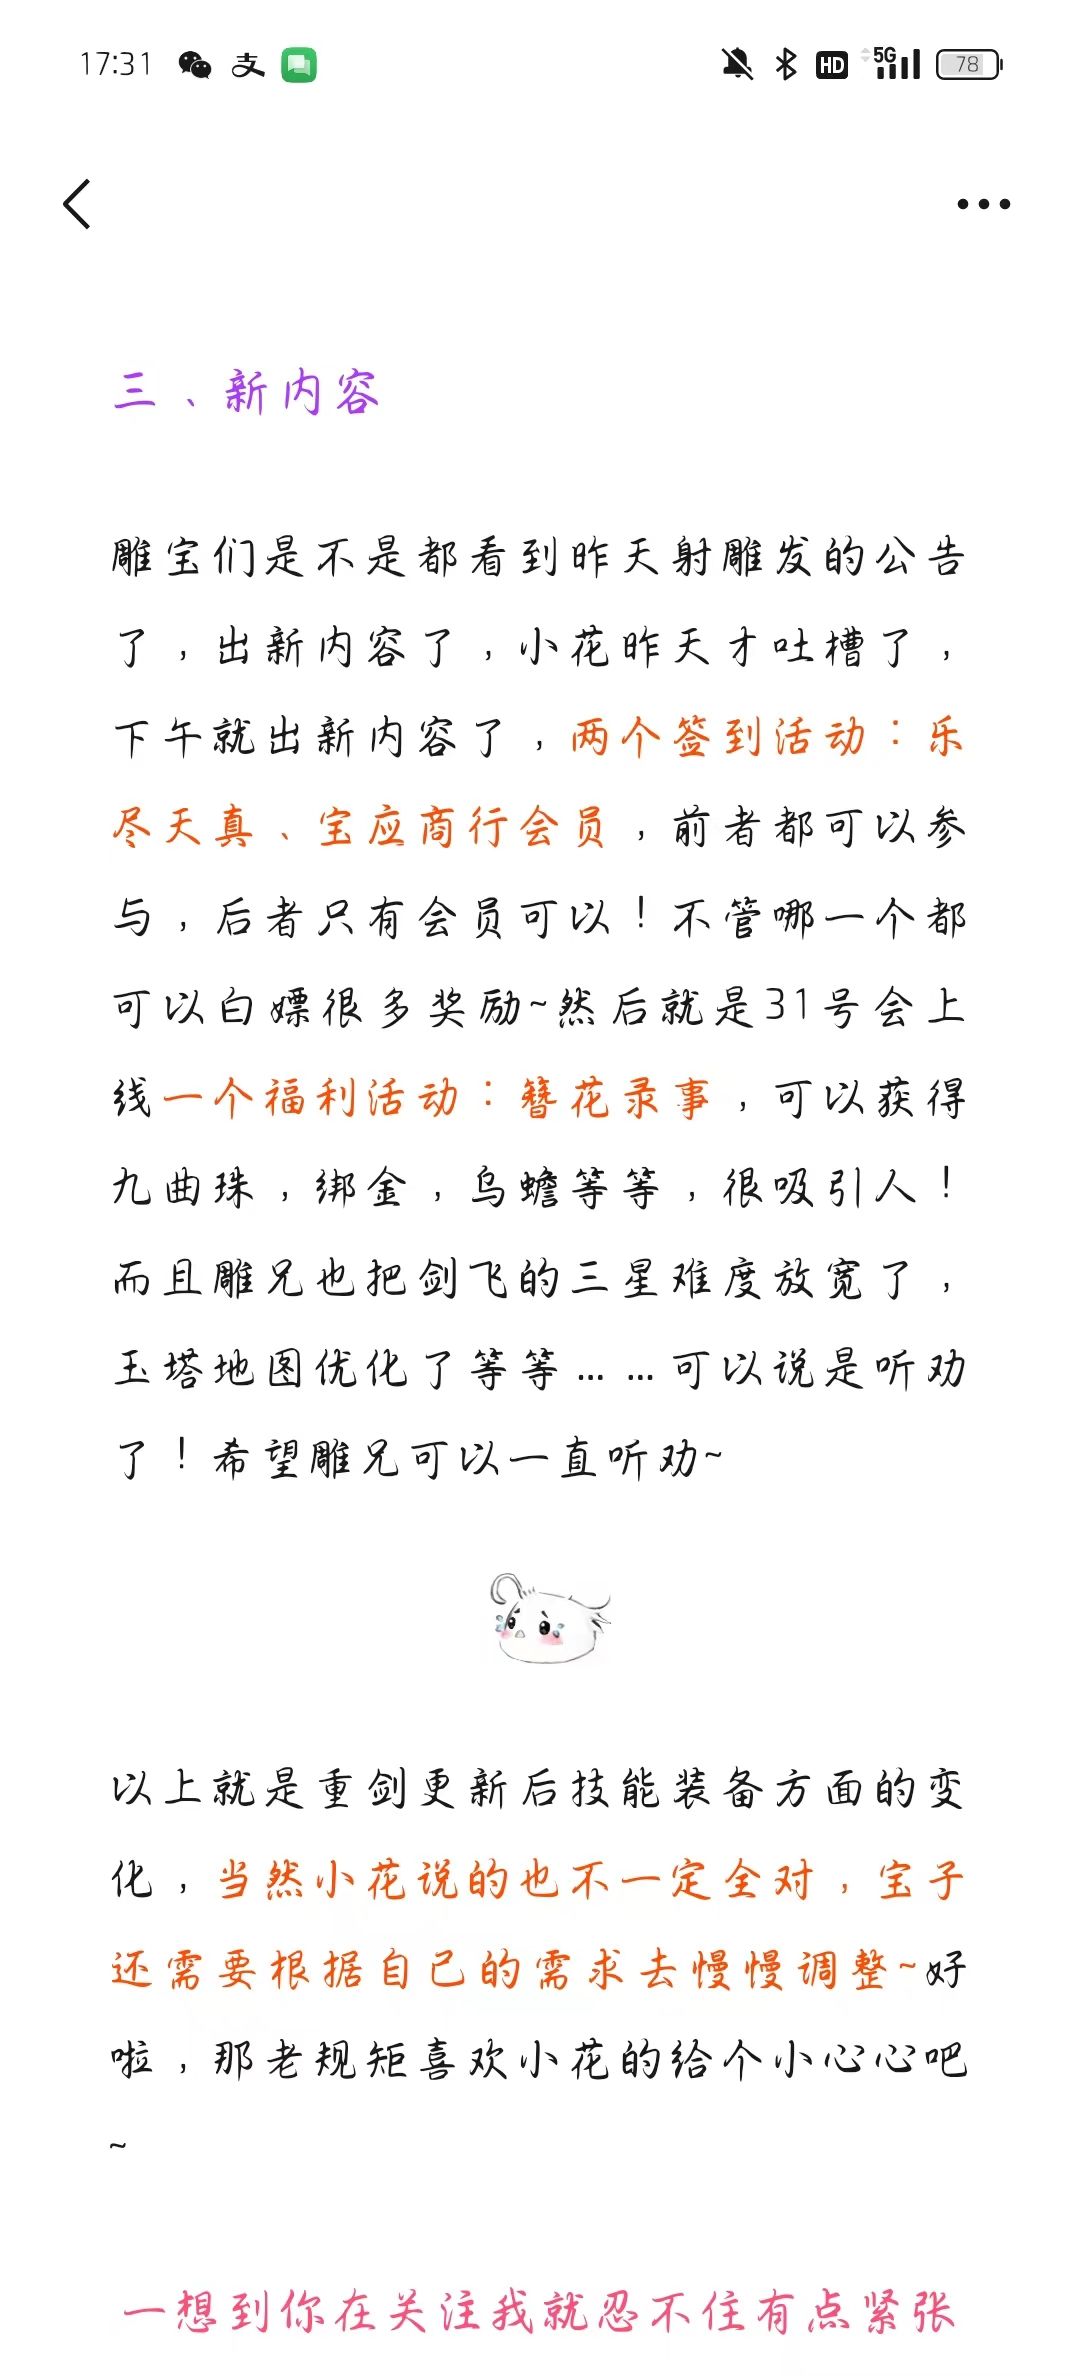 17:31 支 HD 5G 78
三、新内容
雕宝们是不是都看到昨天射雕发的公告
了，出新内容了，小花昨天才吐槽了，
下午就出新内容了，两个签到活动：乐
尽天真、宝应商行会员，前者都可以参
与，后者只有会员可以！不管哪一个都
可以白嫖很多奖励~然后就是31号会上
线一个福利活动：簪花录事，可以获得
九曲珠，绑金，乌蟾等等，很吸引人！
而且雕兄也把剑飞的三星难度放宽了，
玉塔地图优化了等等……可以说是听劝
了！希望雕兄可以一直听劝~
以上就是重剑更新后技能装备方面的变
化，当然小花说的也不一定全对，宝子
还需要根据自己的需求去慢慢调整~好
啦，那老规矩喜欢小花的给个小心心吧
~
一想到你在关注我就忍不住有点紧张